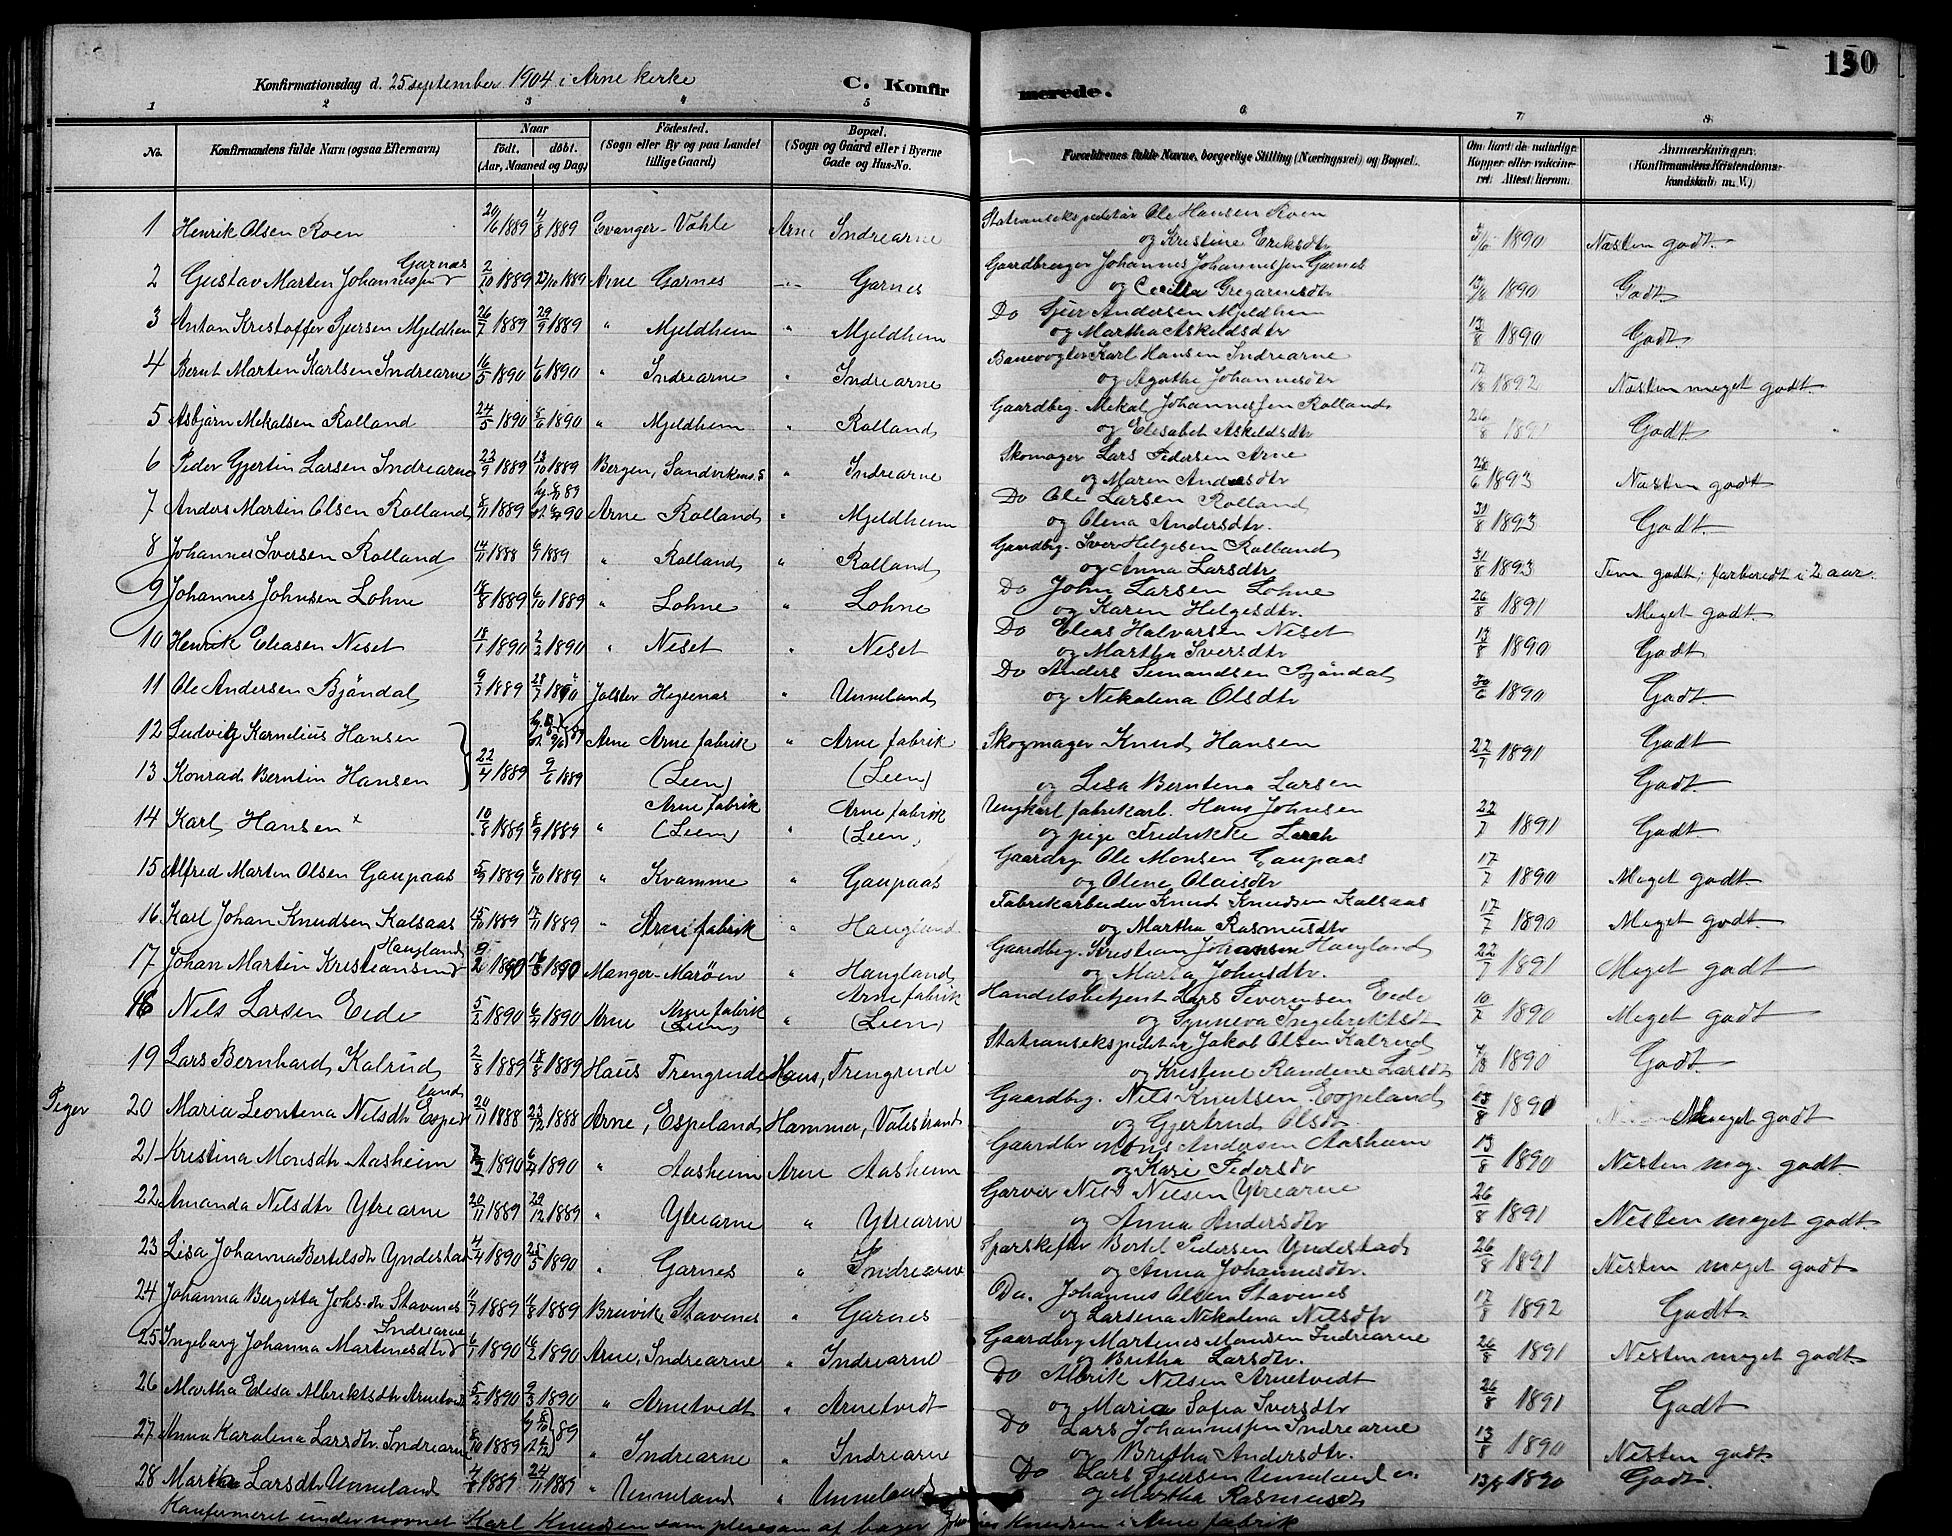 Konfirmationsdag d. 25 september 1904 i Arne kirke C. Konfirmerede. 130
1 2 3 4 5 6 7 8
No. Konfirmandens fulde Navn (ogsaa Efternavn) Naar født. døbt. (Aar, Maaned og Dag) Fødested. (Sogn eller By og paa Landet tillige Gaard) Bopæl. (Sogn og Gaard eller i Byerne Gade og Hus-No. Forældrenes fulde Navne, borgerlige Stilling (Næringsvei) og Bopæl. Om havt de naturlige Kopper eller vaccineret. Attest herom. Anmærkninger. (Konfirmandens Kristendomskundskab m. V.)
1 Henrik Olsen Roen 20/6 1889 4/8 1889 Evanger-Vøhle Arne Indrearne Stationsekspeditør Ole Hansen Roen
og Kristine Eriksdtr 1890 Næsten godt.
2 Gustav Marten Johannesen Garnes 2/10 1889 27/10 1889 Arne Garnes -"- Garnes Gaardbruger Johannes Johannesen Garnes
og Cecilla Gregoriusdtr 1890 Godt
3 Anton Kristoffer Gjersen Mjeldhem 26/7 1889 29/9 1889 " Mjeldhem " Mjeldhem Do Gjer Andersen Mjeldhem
og Martha Askeldsdtr 13/8 1890 Godt.
4 Bernt Marten Karlsen Indrearne 16/5 1890 1/6 1890 " Indrearne " Indrearne Banevogter Karl Hansen Indrearne
og Agathe Johannesdtr 17/8 1892 Næsten meget godt.
5 Asbjørn Mekalsen Rolland 24/5 1890 8/6 1890 " Mjeldhem " Rolland Gaardbrg. Mekal Johannessen Rolland
og Elesabet Askeldsdtr 26/8 1891 Godt
6 Peder Gjertin Larsen Indrearne 23/9 1889 13/10 1889 Bergen, Sandviken " Indrearne Skomager Lars Pedersen Arne
og Maren Andersdtr 28/6 1893 Næsten godt
7 Anders Martin Olsen Rolland 8/11 1889 Arne Rolland " Mjeldhem Do Ole Larsen Rolland
og Olena Andersdtr. 31/8 1893 Godt.
8 Johannes Iversen Rolland 14/11 1888 1889 " Rolland " Rolland Gaardbg. Iver Helgesen Rolland
og Anna Larsdtr 31/8 1893 Tem godt, forberedt i 2 aar.
9 Johannes Johnsen Lohne 18/8 1889 6/10 1889 " Lohne " Lohne Do John Larsen Lohne
og Karen Helgesdtr. 26/8 1891 Meget godt.
10 Henrik Eleasen Neset 18/1 1890 2/2 1890 " Neset " Neset Do Eleas Halvorsen Neset
og Martha Iversdtr 13/8 1890 Godt
11 Ole Andersen Bjøndal 9/7 1889 28/7 Jølster Hegrenæs " Unneland Do Anders Simondsen Bjøndal
og Nekolena Olsdtr 30/6 1890 Godt.
12 Ludvig Kornelius Hansen Arne Arne fabrik " Arne fabrik Skogmager Knud Hansen 22/7 1891 Godt
13 Konrad Berntin Hansen 22/4 1889 9/6 1889 (Leen) (Leen) og Lisa Berntena Larsen Godt.
14 Karl Hansen x 10/8 1889 8/9 1889 " Arne fabrik (Leen) " Arne fabrik (Leen) Ungkarl fabrikarb. Hans Johnsen
og pige Fredrikke Larsdtr 22/7 1891 Godt
15 Alfred Marten Olsen Gaupaas 5/9 1889 6/10 1889 " Kvamme " Gaupaas Gaardbrg Ole Monsen Gaupaas
og Olene Olaisdtr 17/7 1890 Meget godt.
16 Karl Johan Knudsen Kalsaas 15/10 1889 17/11 1889 " Arne fabrik " Haugland Fabrikarbeider Knud Knudsen Kalsaas
og Martha Rasmusdtr 17/7 1890 Meget godt.
17 Johan Martin Kristiansen Haugland 9/2 1890 16/8 1890 Manger-Marøen " Haugland Gaardbg. Kristian Johansen Haugland
og Marta Johnsdtr. 22/7 1891 Meget godt
18 Nels Larsen Eede 5/2 1890 6/4 1890 Arne Arne fabrik (Leen) " Arne fabrik (Leen) Handelsbetjent Lars Severensen Eede
og Synneva Ingebrektsdtr 10/7 1890 Meget godt
19 Lars Bernhard Kalrud 2/8 1889 18/8 1889 Haus Trengrude Haus, Trengrude Stationsekspeditør Jakob Olsen Kalrud
og Kristine Randene Larsdtr 1890 Godt.
Piger 20 Maria Leontena Nilsdtr Espeland 20/11 1888 23/12 1888 Arne, Espeland Hammer, Valestrand Gaardbrg. Nels Knutsen Espeland
og Gjertrud Olsdtr 13/8 1890 Meget godt
21 Kristina Monsdtr Aasheim 1890 1890 " Aasheim Arne Aasheim Gaardbr Mons Andersen Aasheim
og Kari Pedersdtr 13/8 1890 Nesten meg. godt.
22 Amanda Nilsdtr Ytrearne 20/11 1889 29/12 1889 " Ytrearne " Ytrearne Garver Nils Nilsen Ytrearne
og Anna Andersdtr 26/8 1891 Nesten meget godt.
23 Lisa Johanna Bertelsdtr Yndestad 4/4 1890 25/5 1890 " Garnes " Indrearne Bertel Pedersen Yndestad
og Anna Johannesdtr. 26/8 1891 Nesten meget godt
24 Johanna Bergetta Johs.dtr Stavenes 1889 1889 Bruvik, Stavenes " Garnes Do. Johannes Olsen Stavenes
og Larsena Nikolena Nilsdtr 17/8 1892 Godt.
25 Ingeborg Johanna Martinesdtr Indrearne 6/1 1890 16/2 1890 Arne, Indrearne " Indrearne Gaardbrg Martines Monsen Indrearne
og Britha Larsdtr. 26/8 1891 Nesten meget godt.
26 Martha Elisa Albriktsdtr Arnetvedt 5/2 1890 9/3 1890 " Arnetvedt " Arnetvedt Do Albrik Nilsen Arnetvedt
og Maria Sofia Iversdtr 26/8 1891 Godt
27 Anna Karolena Larsdtr. Indrearne 8/10 1889 " Indrearne " Indrearne Do Lars Johannessen Indrearne
og Britha Andersdtr. 13/8 1890 Nesten godt.
28 Martha Larsdtr Unneland 1889 24/11 1889 " Unneland " Unneland Do Lars Gjersen Unneland
og Martha Rasmusdtr 13/8 1890 Godt.
Konfermeret under navnet Karl Knudsen som pleiesøn af Knudsen i Arne fabrik